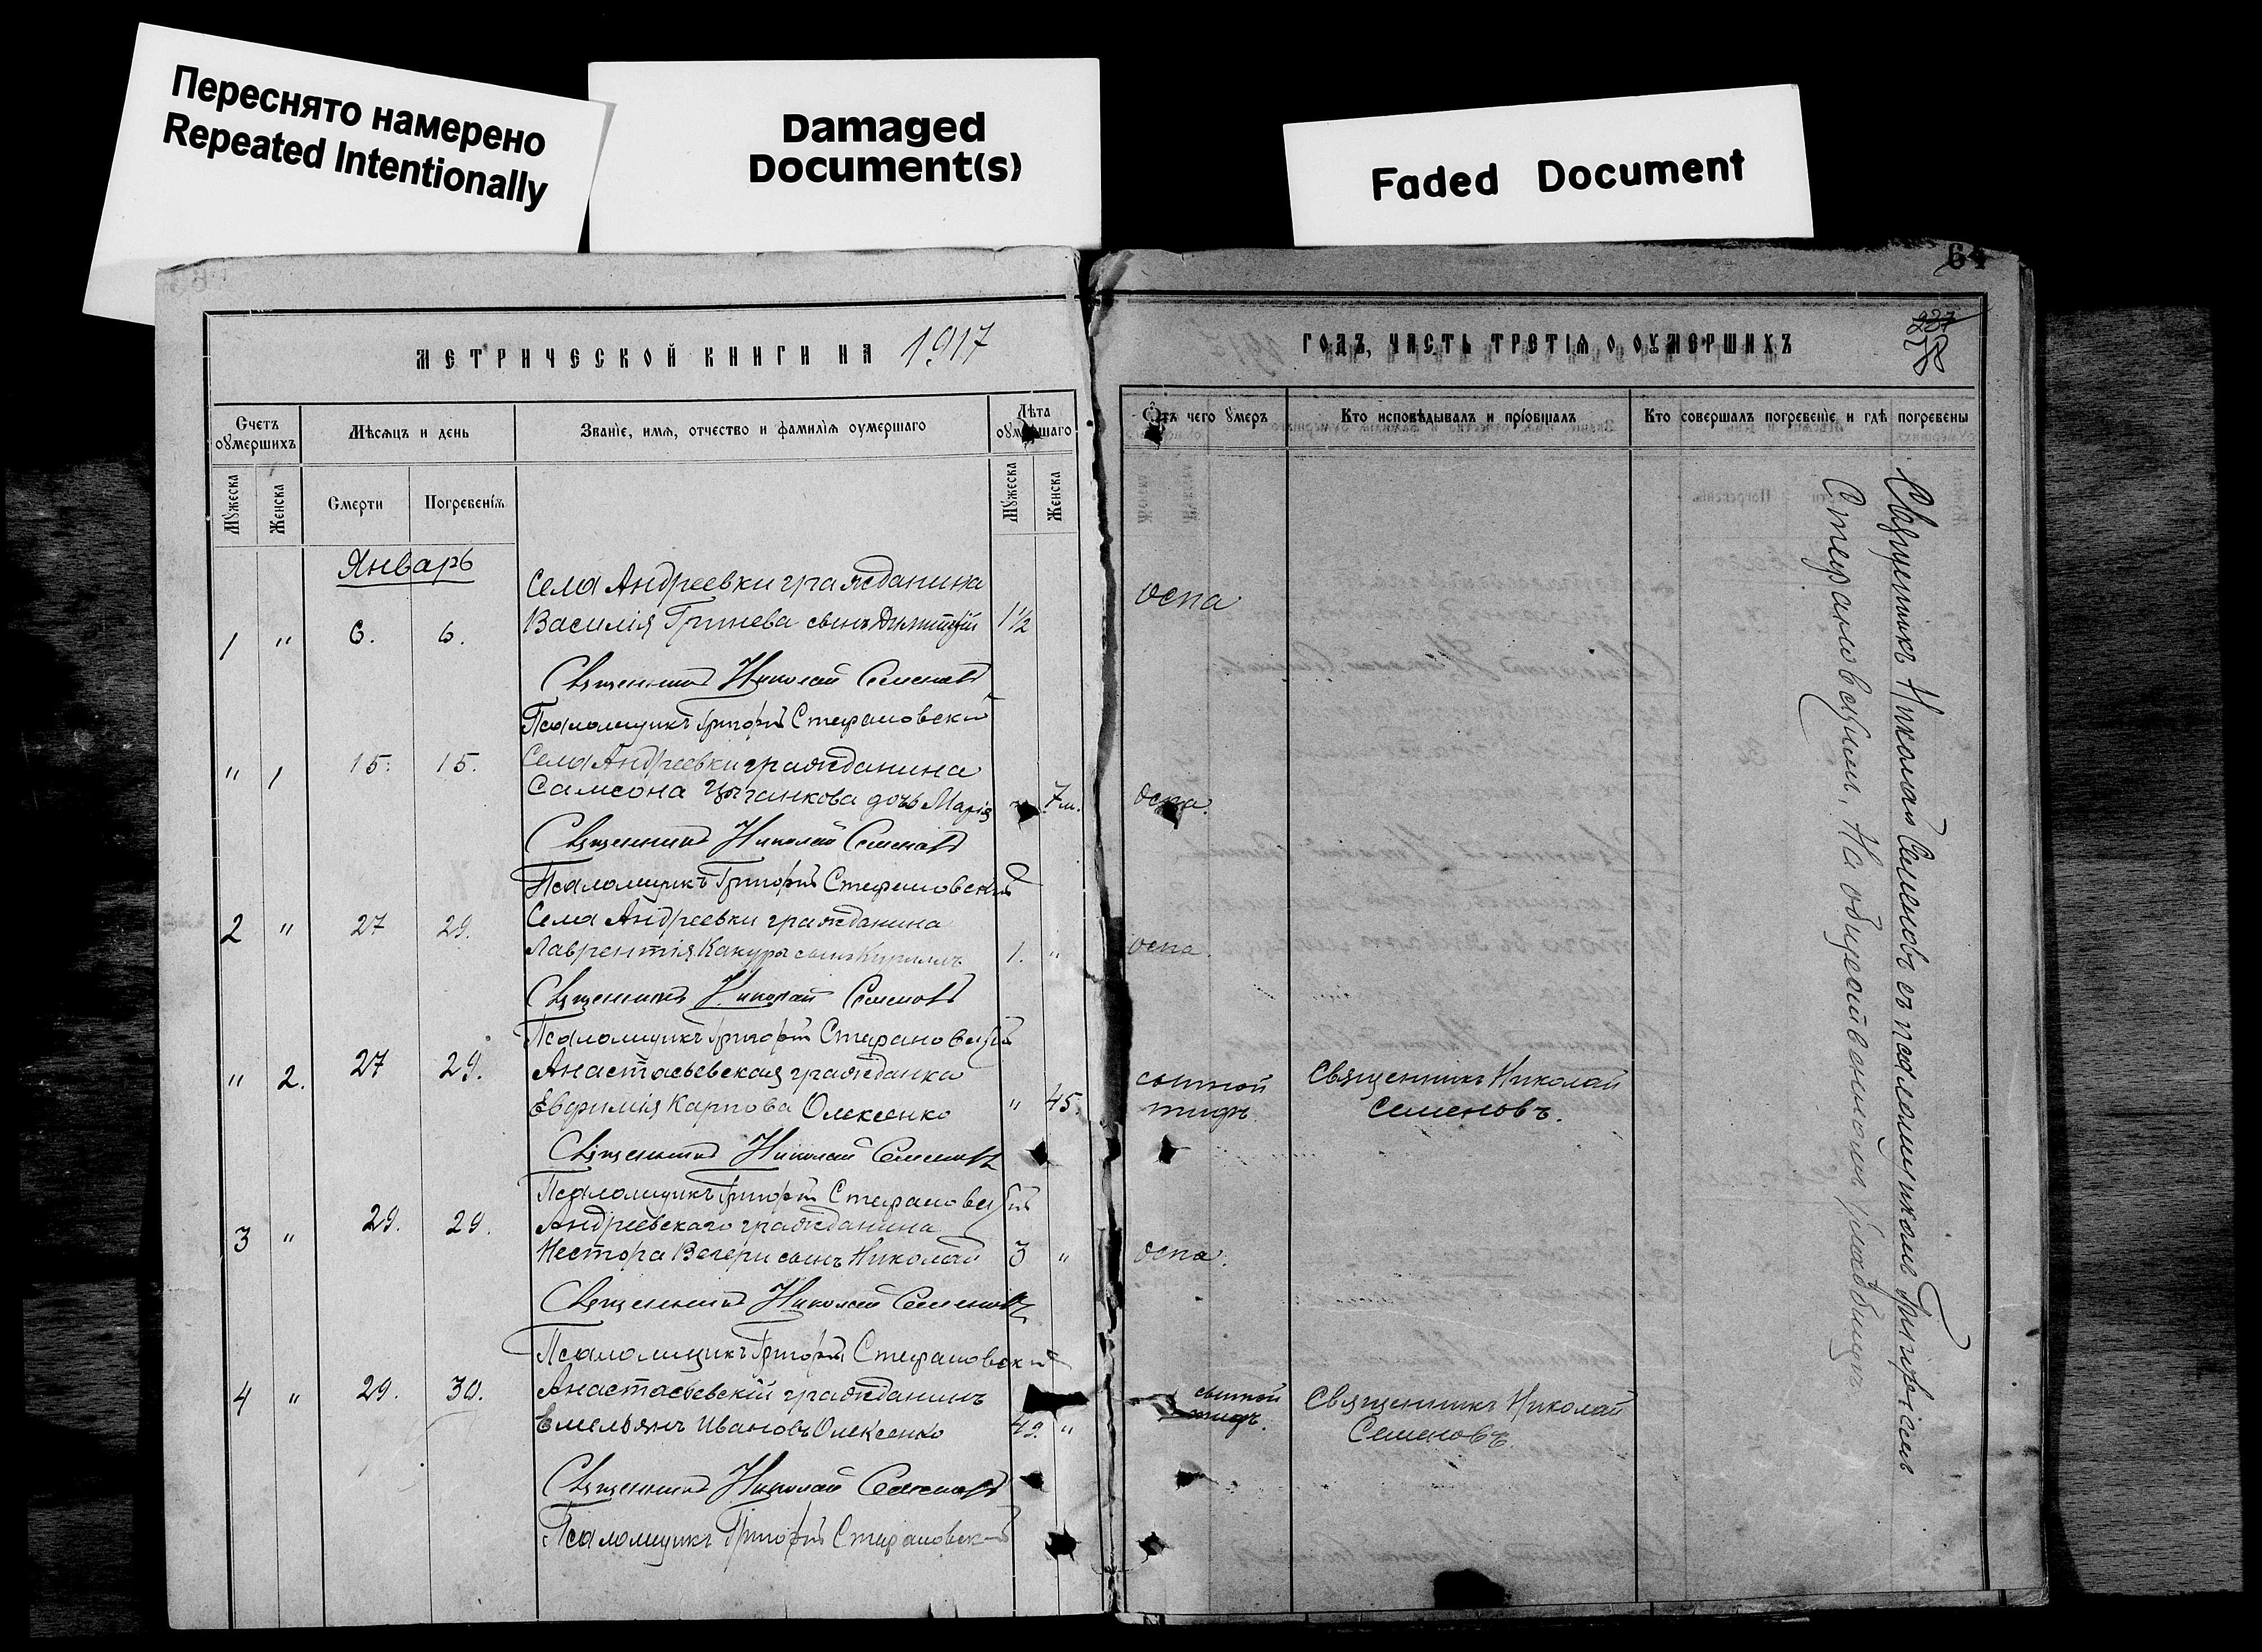 Переснято намерено
Repeated Intentionally
Damaged
Document(s)
Faded Document
64
237
МЕТРИЧЕСКОЙ КНИГИ НА 1917
ГОДЪ, ЧАСТЬ ТРЕТІѦ О ОУМЕРШИХЪ
Счетъ оумершихъ
Мѣсѧцъ и день
Званїе, имѧ, отчество и фамилїѧ оумершаго
Лѣта оумершаго
Ѿ чего ꙋмеръ
Кто исповѣдывалъ и прїобщалъ
Кто совершалъ погребенїе и гдѣ погребены
Мꙋжеска
Женска
Смерти
Погребенїѧ
Мꙋжеска
Женска
Январь
Села Андреевки гражданина
1 " 6. 6. Василія Гринева сынъ Димитрій 1½
оспа
Священникъ Николай Семеновъ
Псаломщикъ Григорій Стефановскій
" 1 15. 15. Села Андреевки гражданина
Самсона Цыганкова дочь Марія " 7 м. оспа.
Священникъ Николай Семеновъ
Псаломщикъ Григорій Стефановскій
2 " 27 29. Села Андреевки гражданина
Лаврентія Какуры сынъ Кириллъ 1. " оспа.
Священникъ Николай Семеновъ
Псаломщикъ Григорій Стефановскій
" 2. 27 29. Анастасьевская гражданка
Евфимія Карпова Олексенко " 45.
сыпной тифъ.
Священникъ Николай
Семеновъ.
Священникъ Николай Семеновъ
Псаломщикъ Григорій Стефановскій
3 " 29. 29. Андреевскаго гражданина
Нестора Вегери сынъ Николай 3 " оспа.
Священникъ Николай Семеновъ
Псаломщикъ Григорій Стефановскій
4 " 29. 30. Анастасьевскій гражданинъ
Емельянъ Ивановъ Олексенко 49. "
сыпной тифъ.
Священникъ Николай
Семеновъ.
Священникъ Николай Семеновъ
Псаломщикъ Григорій Стефановскій
Священникъ Николай Семеновъ съ псаломщикомъ Григоріемъ
Стефановскимъ. На общественномъ кладбищѣ.